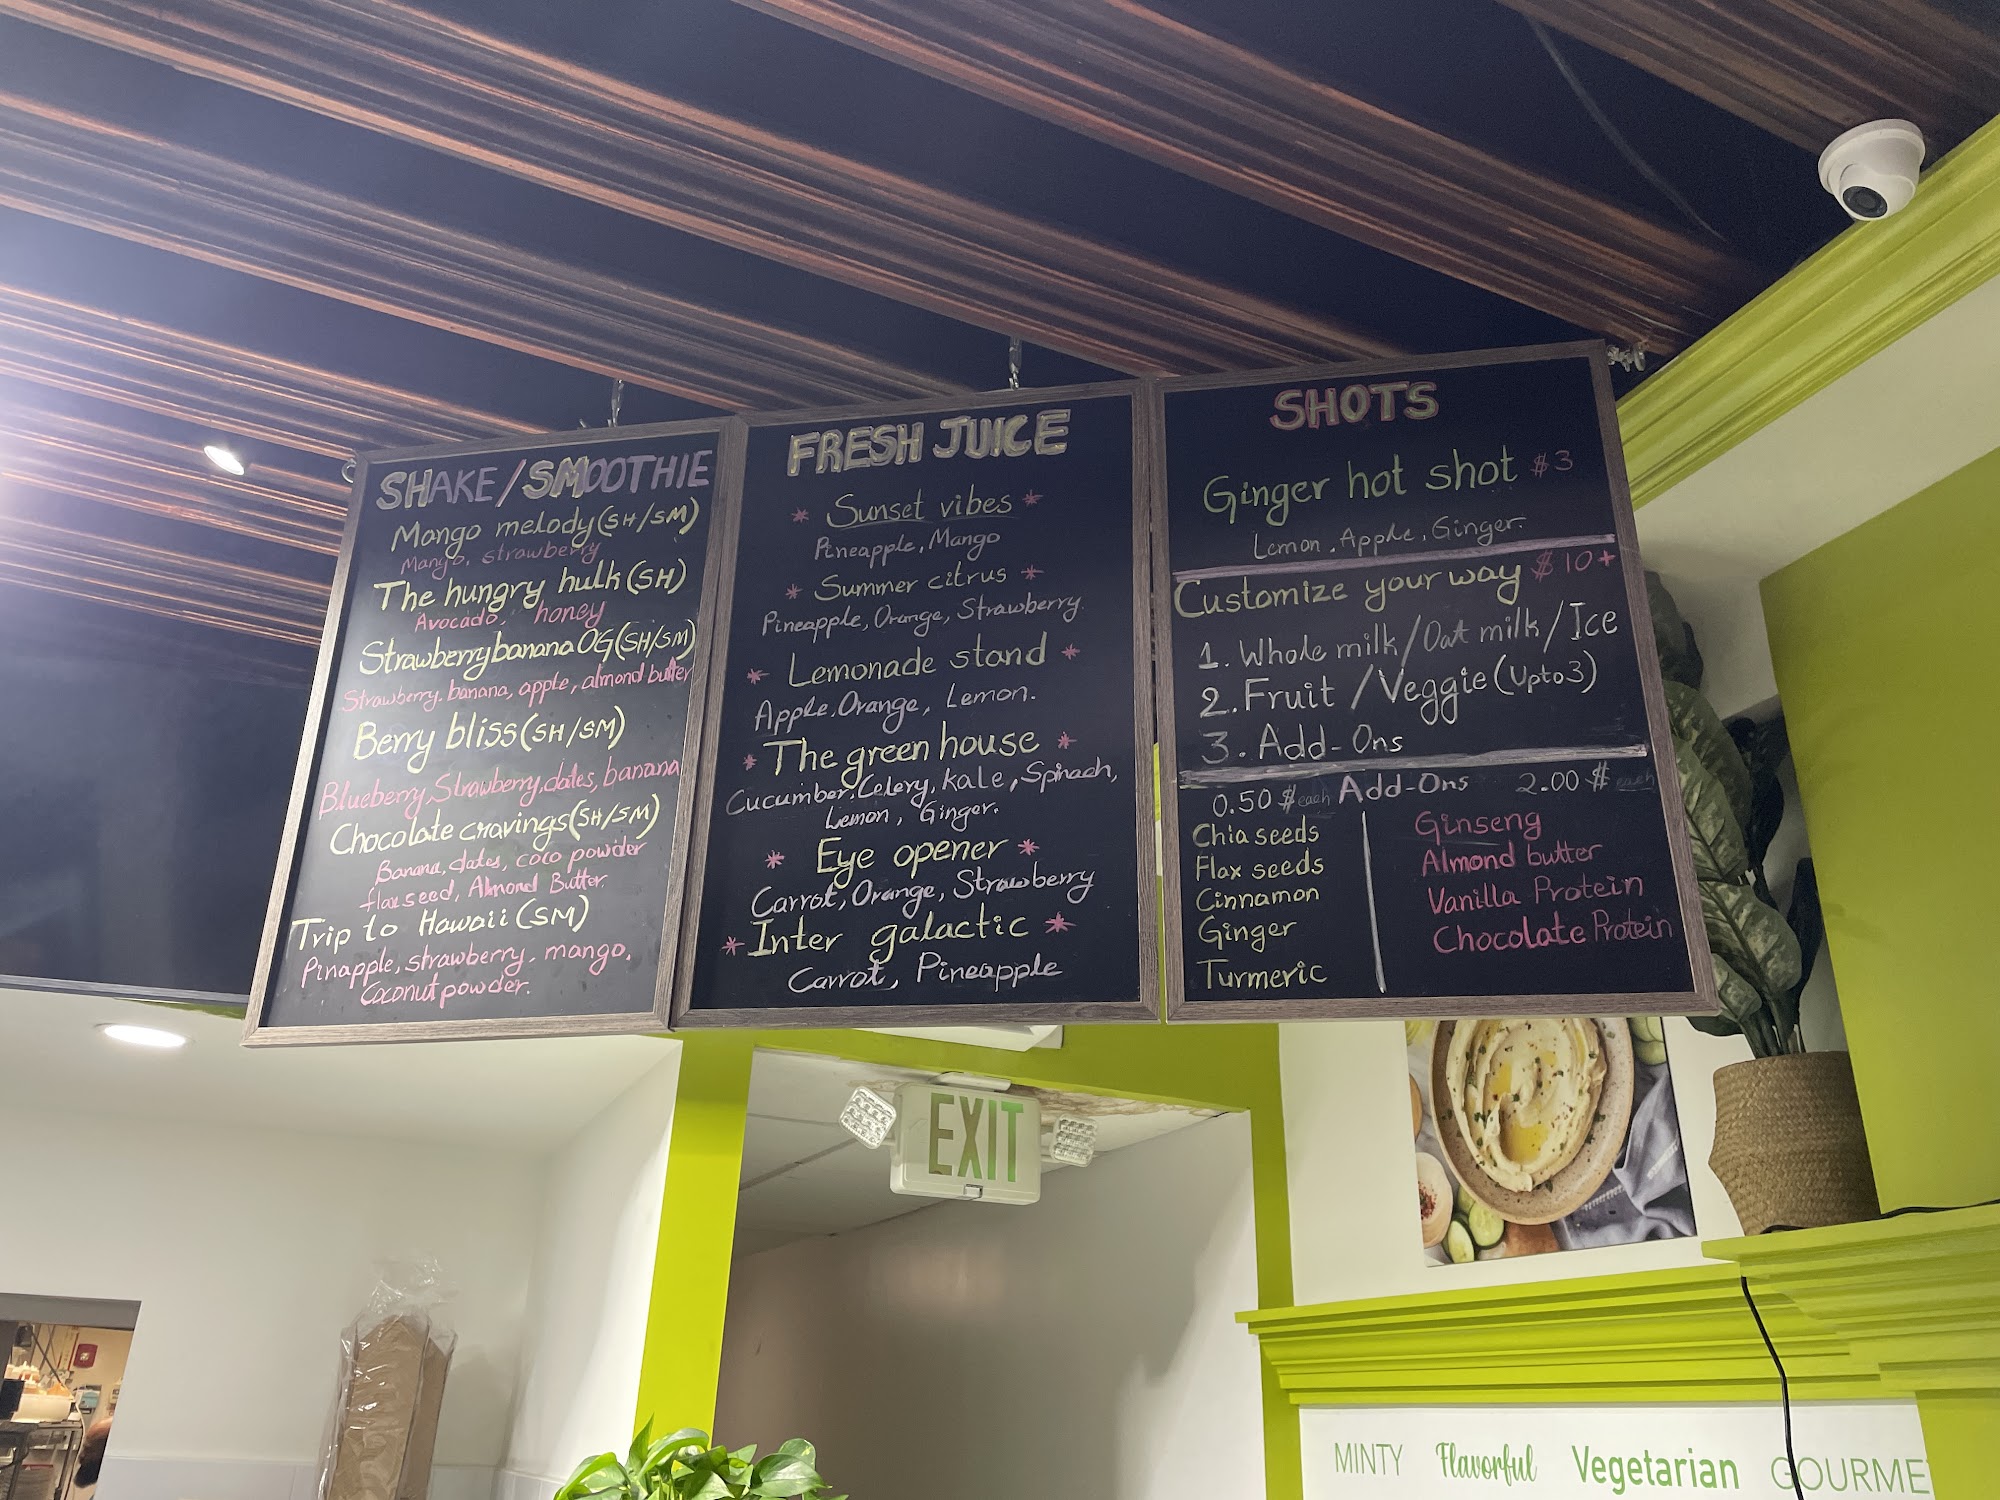 SHAKE/SMOOTHIE
Mango melody(SH/SM)
Mango, strawberry
The hungry hulk(SH)
Avocado, honey
Strawberry banana OG(SH/SM)
Strawberry, banana, apple, almond butter
Berry bliss(SH/SM)
Blueberry, Strawberry, dates, banana
Chocolate cravings(SH/SM)
Banana, dates, coco powder
flaxseed, Almond Butter.
Trip to Hawaii(SM)
Pinapple, strawberry, mango,
Coconut powder.
FRESH JUICE
* Sunset vibes *
Pineapple, Mango
* Summer citrus *
Pineapple, Orange, Strawberry.
* Lemonade stand *
Apple, Orange, Lemon.
* The green house *
Cucumber, Celery, kale, Spinach,
Lemon, Ginger.
* Eye opener *
Carrot, Orange, Strawberry
* Inter galactic *
Carrot, Pineapple
SHOTS
Ginger hot shot $3
Lemon, Apple, Ginger.
Customize your way $10+
1. Whole milk/Oat milk/Ice
2. Fruit/Veggie (Upto3)
3. Add-Ons
0.50 $ each Add-Ons 2.00 $ each
Chia seeds
Flax seeds
Cinnamon
Ginger
Turmeric
Ginseng
Almond butter
Vanilla Protein
Chocolate Protein
EXIT
MINTY Flavorful Vegetarian GOURME